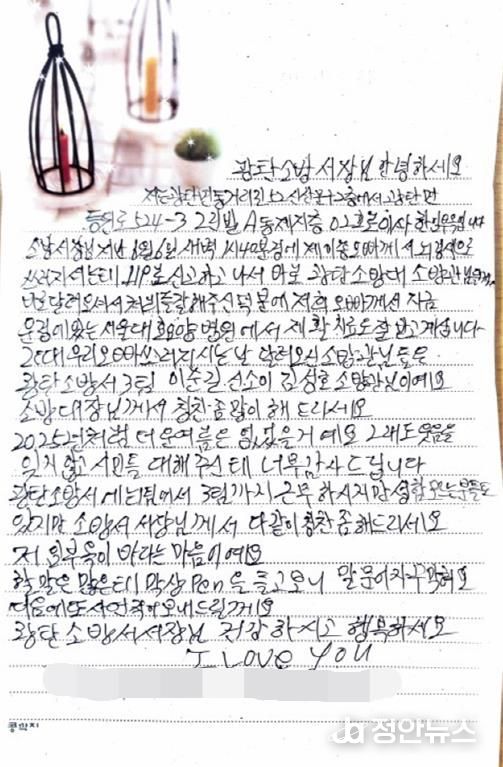 광탄소방서장님 안녕하세요
저는광탄면 동거리길 52 신산 에서 광탄면
등원로 524-3 2 빌 A동 제지층 02호로 이사 한
소방서장님 지난 6일 새벽 1시40분경에 제 오빠께서 뇌경색으로
쓰러지셔는데 119로 신고하고 나서 바로 광탄소방대 소방관님
달려오셔서 처치를잘해주신덕분에 저희 오빠께서 지금
운정에있는 서울대효요양병원에서 재활치료도 잘받고계십니다
그대 우리오빠쓰러지시는날 달려오신소방관님들은
광탄소방서3팀 이순길 선소이 김성호 소방관님이예요
소방대장님께서 칭찬좀많이 해 드리세요
2025년처럼 더운여름은 없었을거예요 그래도 웃음을
잊지 않고 시민들 대해주신데 너무감사드립니다
광탄소방서에는 1팀에서 3팀까지 근무하시지만 성함모르는분들도
있지만 소방서 서장님께서 다같이 칭찬좀해드리세요
저 외부욱이 바라는마음이예요
할말은 많은데 막상 Pen을 들고보니 말문이
다음에또 사연 적어보내드릴게요
광탄소방서서장님 건강하시고 행복하세요
I LOVE YOU
콩학지
정안뉴스